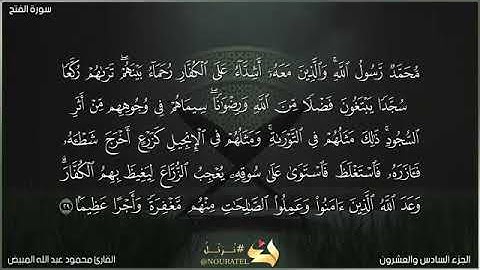 سورة الفتح
مُّحَمَّدٌ رَّسُولُ ٱللَّهِ ۚ وَٱلَّذِينَ مَعَهُۥٓ أَشِدَّآءُ عَلَى ٱلْكُفَّارِ رُحَمَآءُ بَيْنَهُمْ ۖ تَرَىٰهُمْ رُكَّعًا
سُجَّدًا يَبْتَغُونَ فَضْلًا مِّنَ ٱللَّهِ وَرِضْوَٰنًا ۖ سِيمَاهُمْ فِى وُجُوهِهِم مِّنْ أَثَرِ
ٱلسُّجُودِ ۚ ذَٰلِكَ مَثَلُهُمْ فِى ٱلتَّوْرَىٰةِ ۚ وَمَثَلُهُمْ فِى ٱلْإِنجِيلِ كَزَرْعٍ أَخْرَجَ شَطْـَٔهُۥ
فَـَٔازَرَهُۥ فَٱسْتَغْلَظَ فَٱسْتَوَىٰ عَلَىٰ سُوقِهِۦ يُعْجِبُ ٱلزُّرَّاعَ لِيَغِيظَ بِهِمُ ٱلْكُفَّارَ ۗ
وَعَدَ ٱللَّهُ ٱلَّذِينَ ءَامَنُوا۟ وَعَمِلُوا۟ ٱلصَّٰلِحَٰتِ مِنْهُم مَّغْفِرَةً وَأَجْرًا عَظِيمًۢا ٢٩
الجزء السادس والعشرون
#نُرَتِّل
@NOURATEL
القارئ محمود عبد الله المبيض